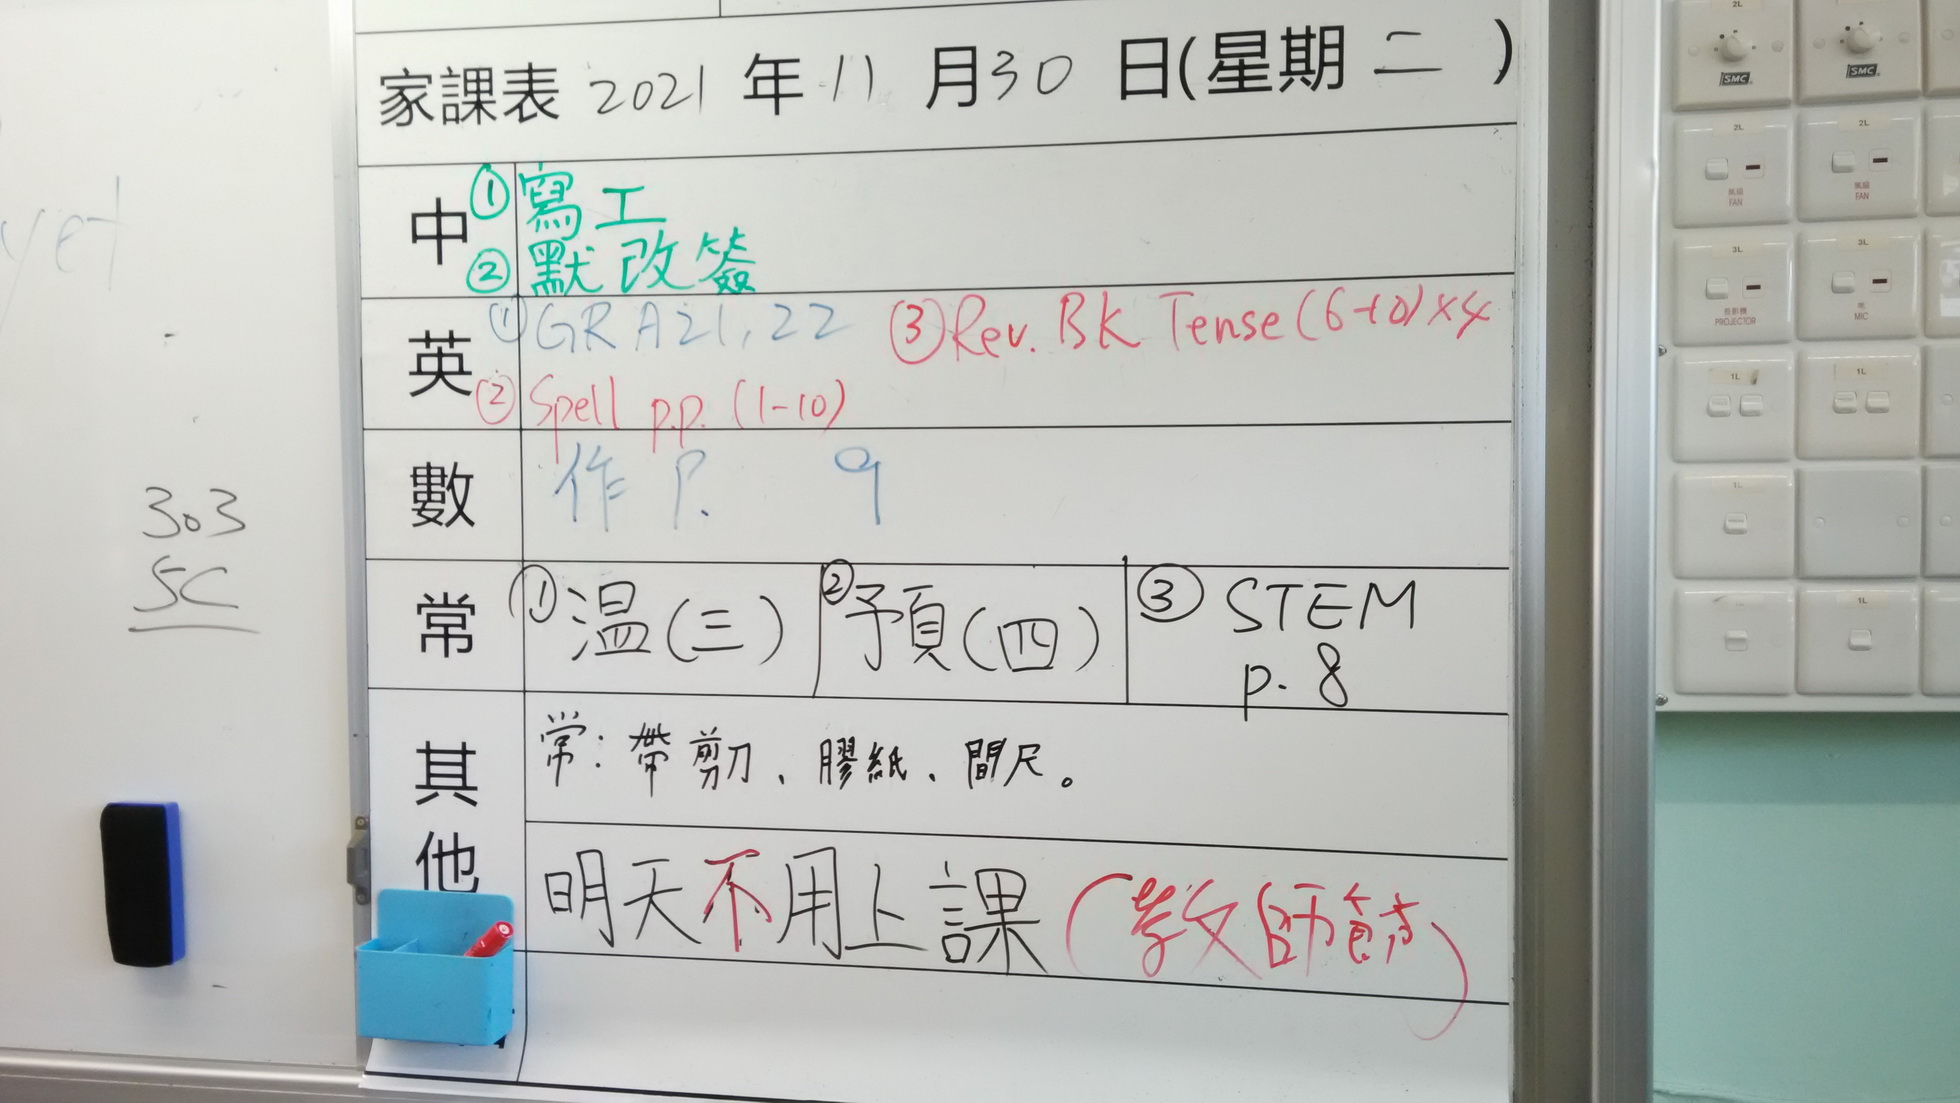 家課表 2021 年 11 月 30 日(星期 二 )
中 ① 寫工
② 默改簽
英 ① GRA21, 22 ③ Rev. Bk Tense (6-10) x4
② Spell p.p. (1-10)
數 作 P. 9
常 ① 溫(三) ② 預(四) ③ STEM
p. 8
其他
常：帶剪刀、膠紙、間尺。
明天不用上課(教師節)
yet
303
5C
2L
SMC
SMC
2L
2L
風扇
FAN
風扇
FAN
3L
3L
投影機
PROJECTOR
咪
MIC
1L
1L
1L
1L